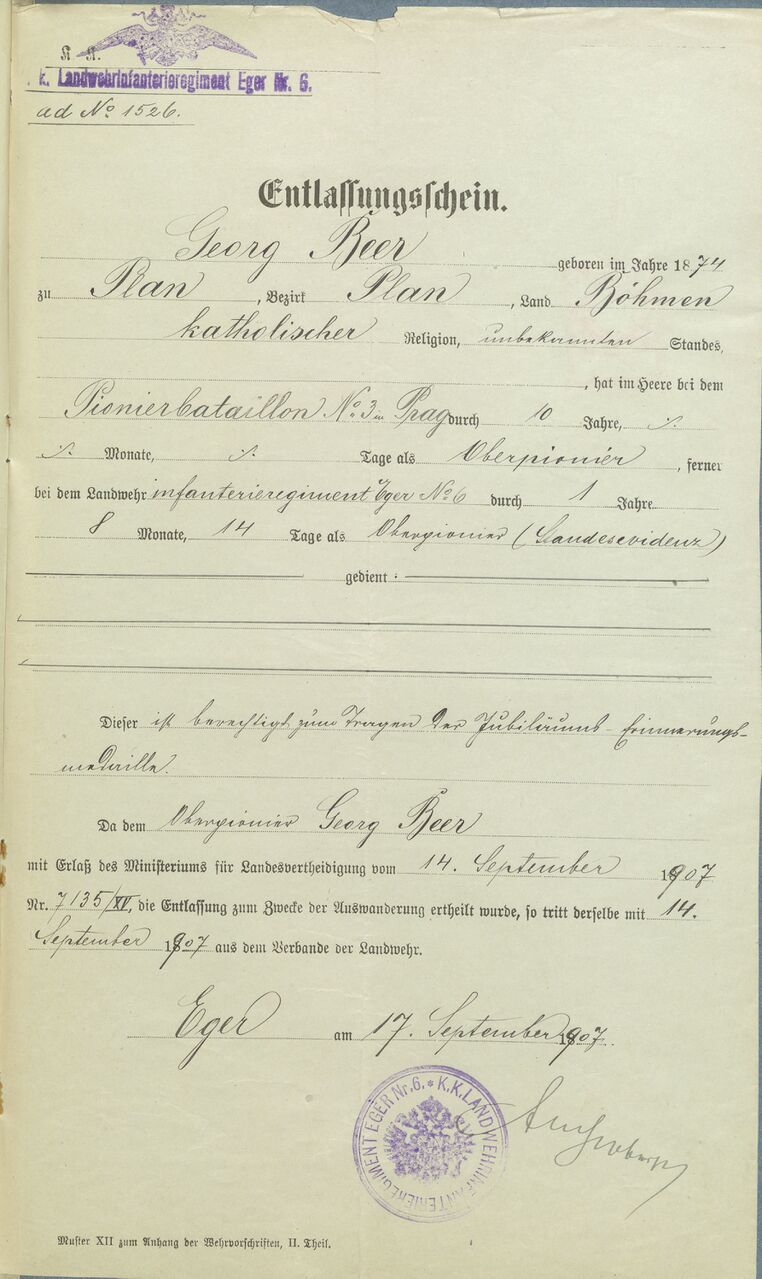 K. K.
k. Landwehrinfanterieregiment Eger Nr. 6.
ad No 1526.
Entlassungsschein.
Georg Beer geboren im Jahre 1874
zu Plan, Bezirk Plan, Land Böhmen
katholischer Religion, unbekannten Standes,
, hat im Heere bei dem
Pionierbataillon No 3 in Prag durch 10 Jahre, ./.
./. Monate, ./. Tage als Oberpionier, ferner
bei dem Landwehrinfanterieregiment Eger No 6 durch 1 Jahre
8 Monate, 14 Tage als Oberpionier (Standesevidenz)
gedient.
Dieser ist berechtigt zum Tragen der Jubiläums-Erinnerungs-
medaille.
Da dem Oberpionier Georg Beer
mit Erlaß des Ministeriums für Landesvertheidigung vom 14. September 1907
Nr. 7135/XV, die Entlassung zum Zwecke der Auswanderung ertheilt wurde, so tritt derselbe mit 14.
September 1907 aus dem Verbande der Landwehr.
Eger am 17. September 1907.
K.K. LANDWEHRINFANTERIEREGIMENT EGER Nr. 6. *
Muster XII zum Anhang der Wehrvorschriften, II. Theil.